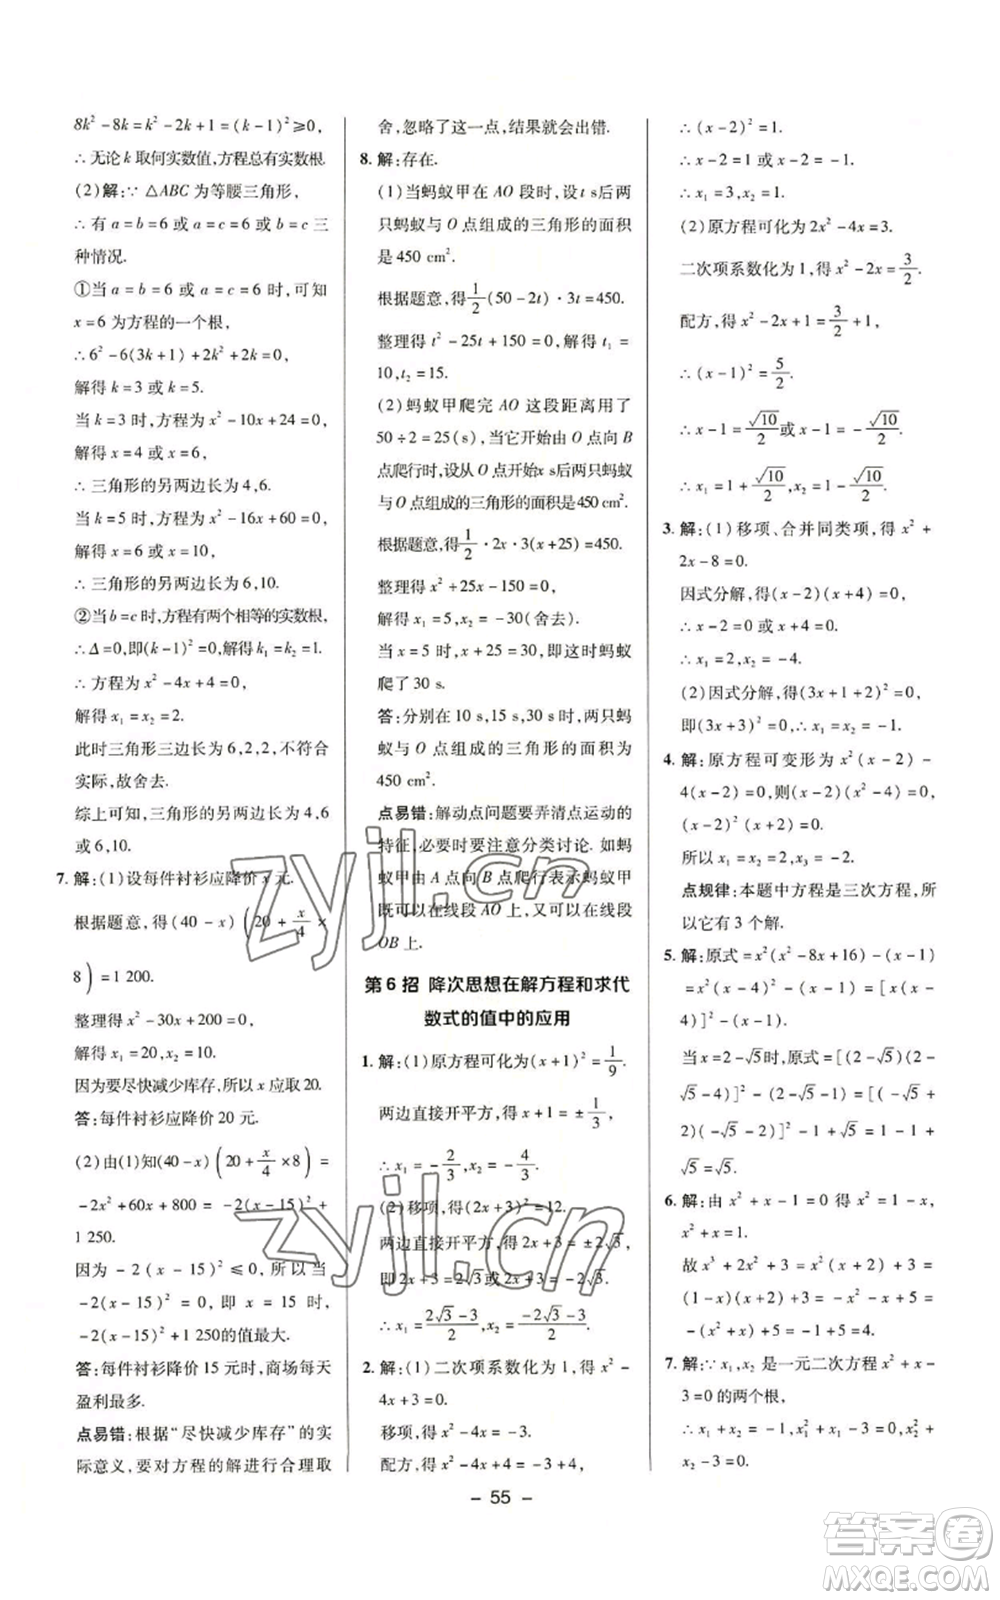 8k²-8k=k²-2k+1=(k-1)²≥0,
∴无论k取何实数值,方程总有实数根.
(2)解:∵△ABC为等腰三角形,
∴有a=b=6或a=c=6或b=c三
种情况.
①当a=b=6或a=c=6时,可知
x=6为方程的一个根,
∴6²-6(3k+1)+2k²+2k=0,
解得k=3或k=5.
当k=3时,方程为x²-10x+24=0,
解得x=4或x=6.
∴三角形的另两边长为4,6.
当k=5时,方程为x²-16x+60=0,
解得x=6或x=10.
∴三角形的另两边长为6,10.
②当b=c时,方程有两个相等的实数根.
∴Δ=0,即(k-1)²=0,解得k₁=k₂=1.
∴方程为x²-4x+4=0,
解得x₁=x₂=2.
此时三角形三边长为6,2,2,不符合
实际,故舍去.
综上可知,三角形的另两边长为4,6
或6,10.
7.解:(1)设每件衬衫应降价x元.
根据题意,得(40-x)(20+x/4×
8)=1 200.
整理得x²-30x+200=0,
解得x₁=20,x₂=10.
因为要尽快减少库存,所以x应取20.
答:每件衬衫应降价20元.
(2)由(1)知(40-x)(20+x/4×8)=
-2x²+60x+800=-2(x-15)²+
1 250.
因为-2(x-15)²≤0,所以当
-2(x-15)²=0,即x=15时,
-2(x-15)²+1 250的值最大.
答:每件衬衫降价15元时,商场每天
盈利最多.
点易错:根据“尽快减少库存”的实
际意义,要对方程的解进行合理取
舍,忽略了这一点,结果就会出错.
8.解:存在.
(1)当蚂蚁甲在AO段时,设t s后两
只蚂蚁与O点组成的三角形的面积
是450 cm².
根据题意,得1/2(50-2t)·3t=450.
整理得t²-25t+150=0,解得t₁=
10,t₂=15.
(2)蚂蚁甲爬完AO这段距离用了
50÷2=25(s),当它开始由O点向B
点爬行时,设从O点开始x s后两只蚂
蚁与O点组成的三角形的面积是450 cm².
根据题意,得1/2·2x·3(x+25)=450.
整理得x²+25x-150=0,
解得x₁=5,x₂=-30(舍去).
当x=5时,x+25=30,所以蚂蚁
爬了30 s.
答:分别在10 s,15 s,30 s时,两只蚂
蚁与O点组成的三角形的面积为
450 cm².
点易错:解动点问题要弄清点运动的
特征,必要时要注意分类讨论.如蚂
蚁甲由A点向B点爬行表示蚂蚁甲
既可以在线段AO上,又可以在线段
OB上.
第6招 降次思想在解方程和求代
数式的值中的应用
1.解:(1)原方程可化为(x+1)²=1/9.
两边直接开平方,得x+1=±1/3,
∴x₁=-2/3,x₂=-4/3.
(2)移项,得(2x+3)²=12.
两边直接开平方,得2x+3=±2√3.
即2x+3=2√3或2x+3=-2√3.
∴x₁=(2√3-3)/2,x₂=(-2√3-3)/2.
2.解:(1)二次项系数化为1,得x²-
4x+3=0.
移项,得x²-4x=-3.
配方,得x²-4x+4=-3+4,
∴(x-2)²=1.
∴x-2=1或x-2=-1.
∴x₁=3,x₂=1.
(2)原方程可化为2x²-4x=3.
二次项系数化为1,得x²-2x=3/2.
配方,得x²-2x+1=3/2+1,
∴(x-1)²=5/2.
∴x-1=√10/2或x-1=-√10/2.
∴x₁=1+√10/2,x₂=1-√10/2.
3.解:(1)移项、合并同类项,得x²+
2x-8=0.
因式分解,得(x-2)(x+4)=0,
∴x-2=0或x+4=0.
∴x₁=2,x₂=-4.
(2)因式分解,得(3x+1+2)²=0,
即(3x+3)²=0,∴x₁=x₂=-1.
4.解:原方程可变形为x²(x-2)-
4(x-2)=0,则(x-2)(x²-4)=0,
(x-2)²(x+2)=0.
所以x₁=x₂=2,x₃=-2.
点规律:本题中方程是三次方程,所
以它有3个解.
5.解:原式=x²(x²-8x+16)-(x-1)
=x²(x-4)²-(x-1)=[x(x-
4)]²-(x-1).
当x=2-√5时,原式=[(2-√5)(2-
√5-4)]²-(2-√5-1)=[(2-√5)(-
√5-2)]²-1+√5=1-1+
√5=√5.
6.解:由x²+x-1=0得x²=1-x,
x²+x=1.
故x³+2x²+4=x·x²+2x²+4=
(1-x)x+2(1-x)+4=
x-x²+2-2x+4=-x²-x+6=
-(x²+x)+6=-1+6=5.
7.解:∵x₁,x₂是一元二次方程x²+x-
3=0的两个根,
∴x₁+x₂=-1,x₁²+x₁-3=0,x₂²+
x₂-3=0.
- 55 -
zyjl.cn
zyjl.cn
答案圈
MXQE.COM